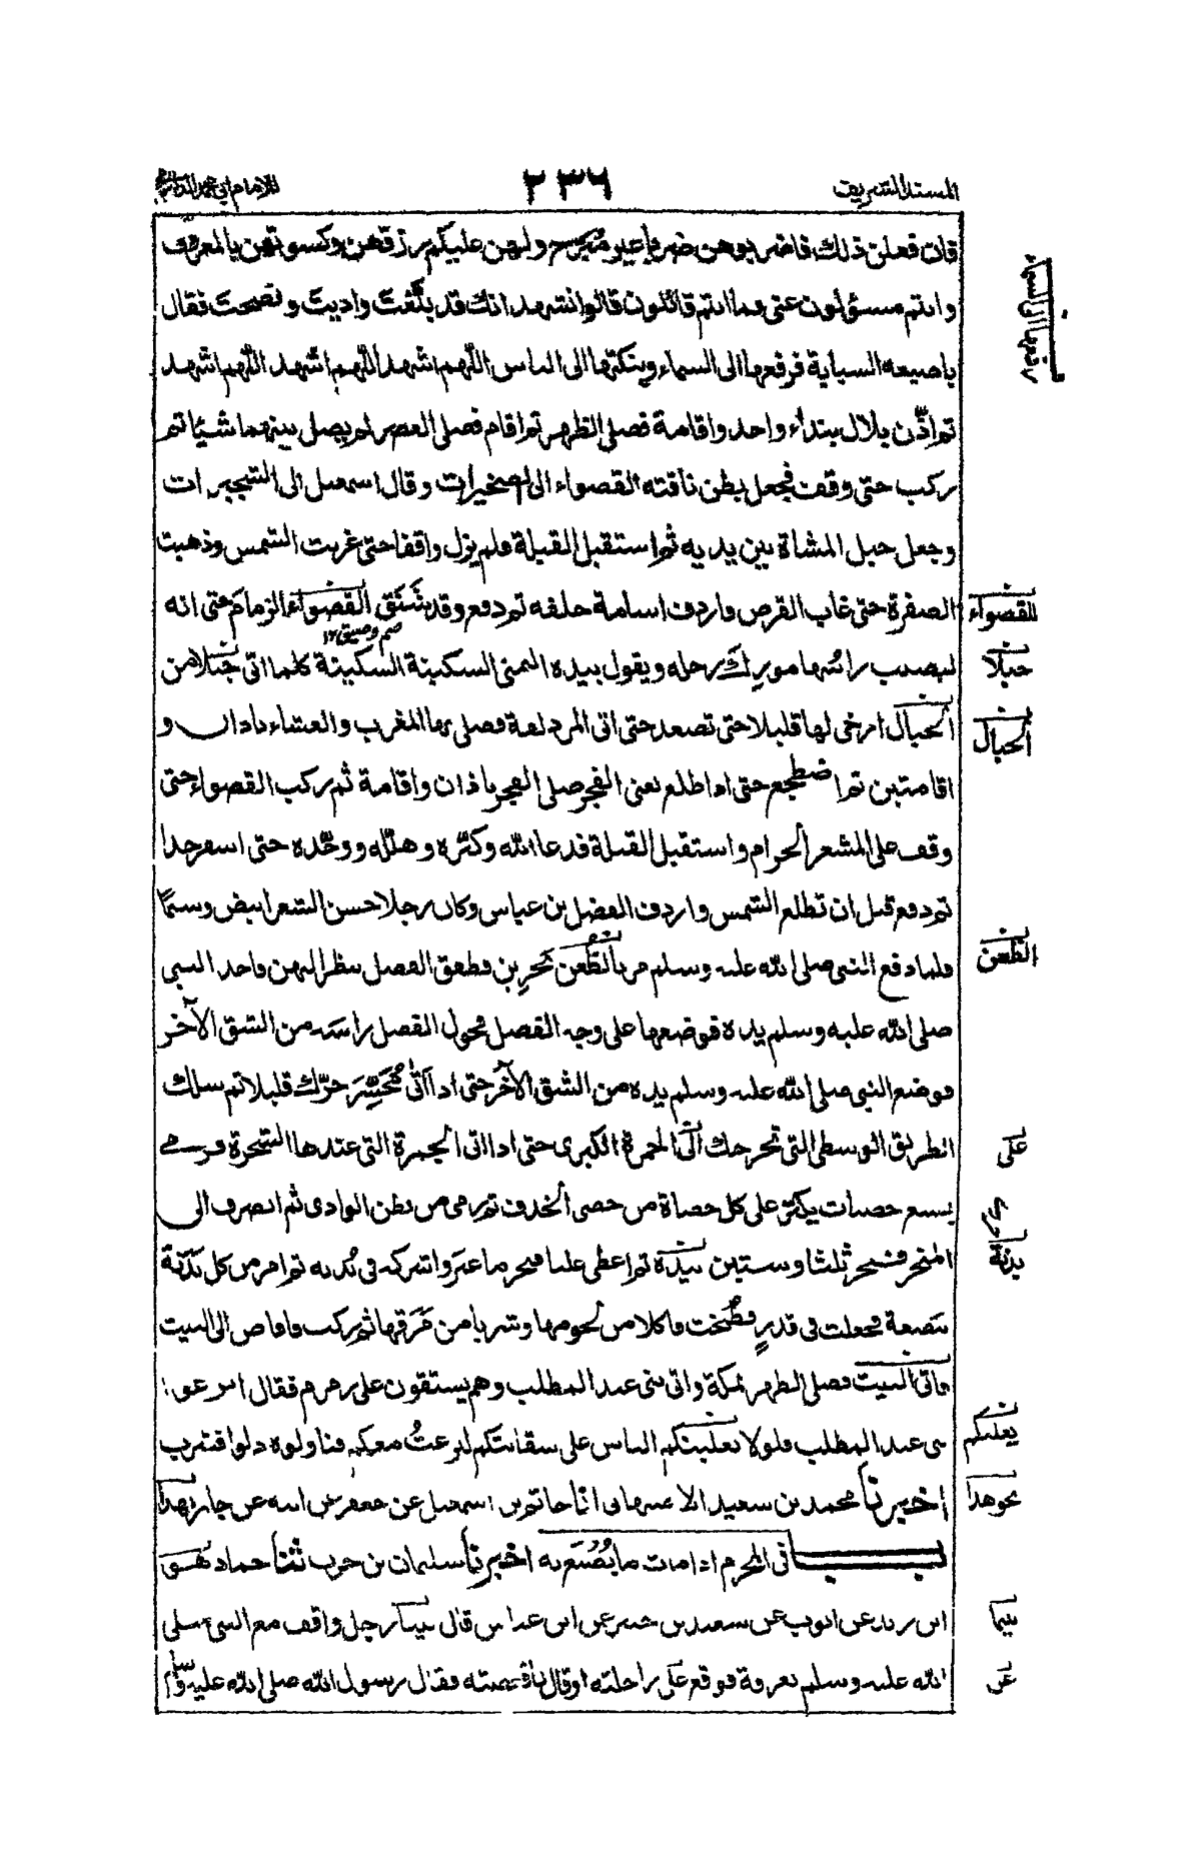 المسند الشريف ٢٣٦ للامام ابي محمد الدارمي
فان فعلن ذلك فاضربوهن ضربا غير مُبَرِّح ولهن عليكم رزقهن وكسوتهن بالمعروف
وانتم مسئولون عني فما انتم قائلون قالوا نشهد انك قد بلّغتَ واديتَ ونصحتَ فقال
باصبعه السبابة فرفعها الى السماء وينكتها الى الناس اللّهم اشهد اللّهم اشهد اللّهم اشهد
ثم اذّن بلال بنداء واحد واقامة فصلى الظهر ثم اقام فصلى العصر لم يصل بينهما شيئا ثم
ركب حتى وقف فجعل بطن ناقته القصواء الى الصخيرات وقال اسمعيل الى الشجيرات
وجعل حبل المشاة بين يديه ثم استقبل القبلة فلم يزل واقفا حتى غربت الشمس وذهبت
الصفرة حتى غاب القرص فاردف اسامة خلفه ثم دفع وقد شَنَق القصواء الزمامَ حتى انه
للقصواء
ضم وضيق ١٢
ليصيب رأسُها مورِكَ رحله ويقول بيده اليمنى السكينة السكينة كلما اتى حَبْلا من
حبلا
الحبال ارخى لها قليلا حتى تصعد حتى اتى المزدلفة فصلى بها المغرب والعشاء باذان و
الحبال
اقامتين ثم اضطجع حتى اذا طلع يعني الفجر صلى الفجر باذان واقامة ثم ركب القصواء حتى
وقف على المشعر الحرام واستقبل القبلة فدعا الله وكبّره وهلّله ووحّده حتى اسفر جدا
ثم دفع قبل ان تطلع الشمس واردف الفضل بن عباس وكان رجلا حسن الشعر ابيض وسيمًا
فلما دفع النبي صلى الله عليه وسلم مر بالظُّعُن يَجرِين فطفق الفضل ينظر اليهن فاخذ النبي
الظعن
صلى الله عليه وسلم يده فوضعها على وجه الفضل فحول الفضل رأسه من الشق الآخر
فوضع النبي صلى الله عليه وسلم يده من الشق الآخر حتى اذا اَتى مُحَسِّرَ حرّك قليلا ثم سلك
الطريق الوسطى التي تخرجك الى الجمرة الكبرى حتى اذا اتى الجمرة التي عندها الشجرة فرمى
على
بسبع حصيات يكبّر على كل حصاة من حصى الخذف ثم رمى من بطن الوادي ثم انصرف الى
المنحر فنحر ثلثا وستين بيده ثم اعطى عليا فنحر ما غبر واشركه في بُدنه ثم امر من كل بَدَنَة
بدنة
ببَضعة فجعلت في قدرٍ فطُبخت فاكلا من لحومها وشربا من مَرَقها ثم ركب فافاض الى البيت
فاتى البيت فصلى الظهر بمكة واتى بني عبد المطلب وهم يستقون على زمزم فقال انزعوا
بني عبد المطلب فلولا يغلبنكم الناس على سقايتكم لنزعتُ معكم فناولوه دلوا فشرب
يغلبكم
اخبرنا محمد بن سعيد الاصبهاني انا حاتم بن اسمعيل عن جعفر عن ابيه عن جابر بهذا
نحو هذا
بــــاب في المحرم اذا مات ما يُصْنَع به اخبرنا سليمان بن حرب ثنا حماد هو
ابن زيد عن ايوب عن سعيد بن جبير عن ابن عباس قال بينا رجل واقف مع النبي صلى
بينما
الله عليه وسلم بعرفة فوقع عَلى راحلته او قال فاقعصته فقال رسول الله صلى الله عليه وسلم
عن